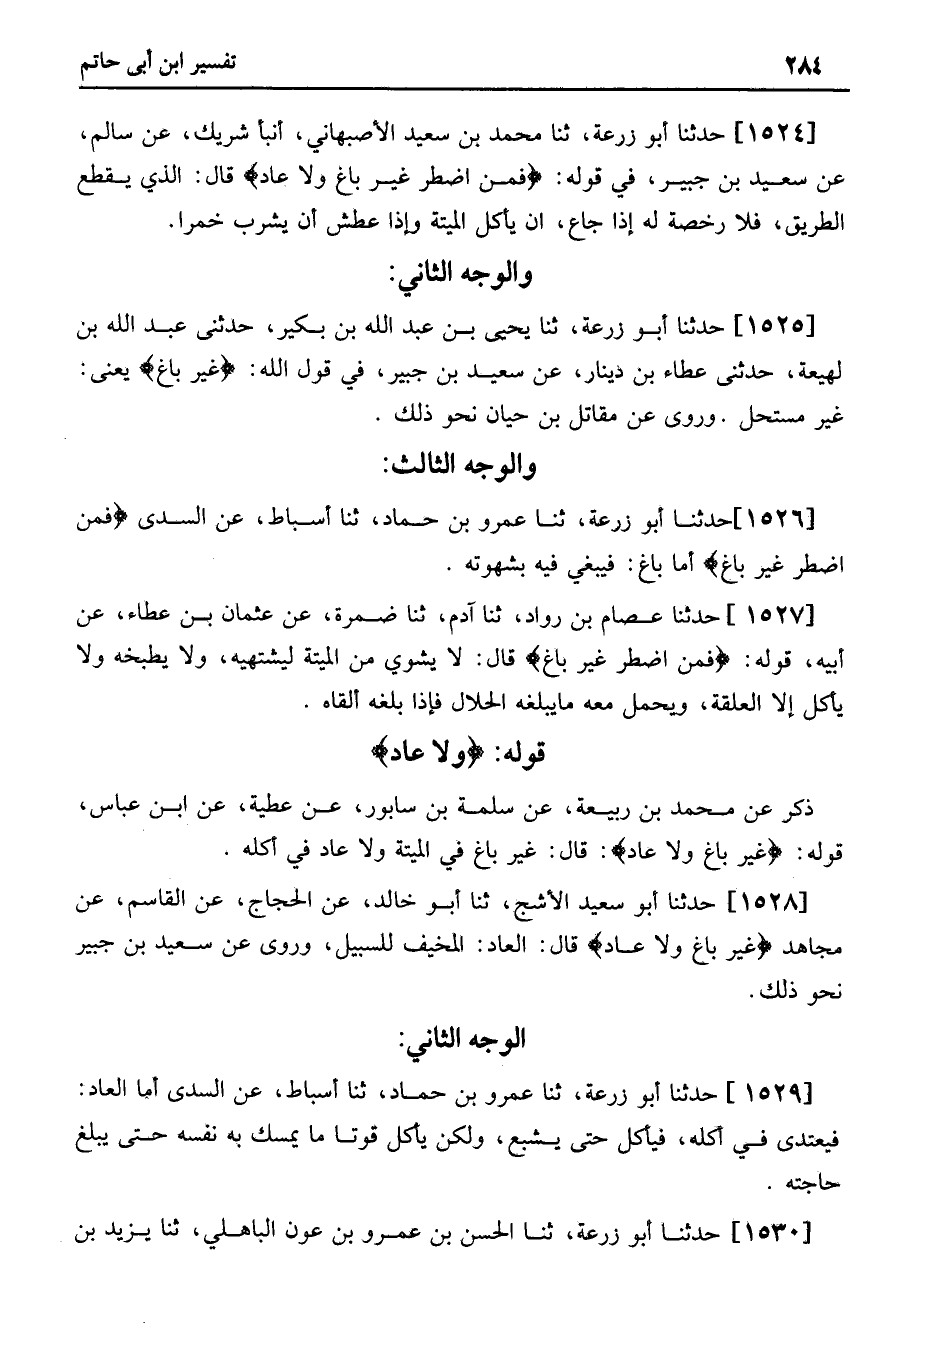 ٢٨٤
تفسير ابن أبى حاتم
[١٥٢٤] حدثنا أبو زرعة، ثنا محمد بن سعيد الأصبهاني، أنبأ شريك، عن سالم،
عن سعيد بن جبير، في قوله: ﴿فمن اضطر غير باغ ولا عاد﴾ قال: الذي يقطع
الطريق، فلا رخصة له إذا جاع، ان يأكل الميتة وإذا عطش أن يشرب خمرا.
والوجه الثاني:
[١٥٢٥] حدثنا أبو زرعة، ثنا يحيى بن عبد الله بن بكير، حدثنى عبد الله بن
لهيعة، حدثنى عطاء بن دينار، عن سعيد بن جبير، في قول الله: ﴿غير باغ﴾ يعنى:
غير مستحل .وروى عن مقاتل بن حيان نحو ذلك .
والوجه الثالث:
[١٥٢٦]حدثنا أبو زرعة، ثنا عمرو بن حماد، ثنا أسباط، عن السدى ﴿فمن
اضطر غير باغ﴾ أما باغ: فيبغي فيه بشهوته .
[١٥٢٧ ] حدثنا عصام بن رواد، ثنا آدم، ثنا ضمرة، عن عثمان بن عطاء، عن
أبيه، قوله: ﴿فمن اضطر غير باغ﴾ قال: لا يشوي من الميتة ليشتهيه، ولا يطبخه ولا
يأكل إلا العلقة، ويحمل معه مايبلغه الحلال فإذا بلغه ألقاه .
قوله: ﴿ولا عاد﴾
ذكر عن محمد بن ربيعة، عن سلمة بن سابور، عن عطية، عن ابن عباس،
قوله: ﴿غير باغ ولا عاد﴾: قال: غير باغ في الميتة ولا عاد في أكله .
[١٥٢٨] حدثنا أبو سعيد الأشج، ثنا أبو خالد، عن الحجاج، عن القاسم، عن
مجاهد ﴿غير باغ ولا عاد﴾ قال: العاد: المخيف للسبيل، وروى عن سعيد بن جبير
نحو ذلك.
الوجه الثاني:
[١٥٢٩ ] حدثنا أبو زرعة، ثنا عمرو بن حماد، ثنا أسباط، عن السدى أما العاد:
فيعتدى في أكله، فيأكل حتى يشبع، ولكن يأكل قوتا ما يمسك به نفسه حتى يبلغ
حاجته .
[١٥٣٠] حدثنا أبو زرعة، ثنا الحسن بن عمرو بن عون الباهلي، ثنا يزيد بن